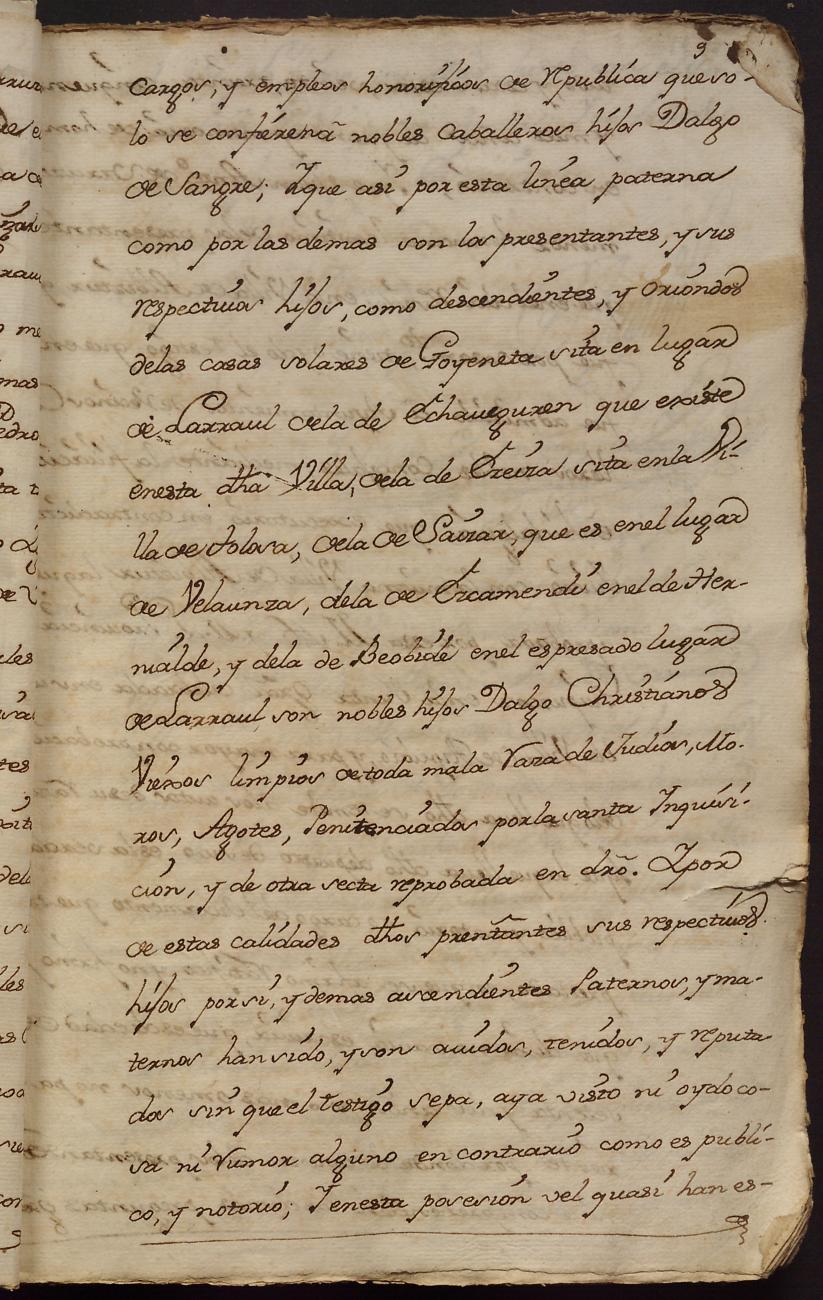 9
cargos, y empleos honorificos de Republica que so-
lo se confieren a nobles Caballeros hijos Dalgo
de Sangre; Y que asi por esta linea paterna
como por las demas son los presentantes, y sus
respectivos hijos, como descendientes, y oriundos
delas casas solares de Goyeneta sita en lugar
de Larraul dela de Echaveguren que existe
enesta dha Villa, dela de Ereiza sita enla Vi-
lla de tolosa, dela de Saizar, que es, enel lugar
de Velaunza, dela de Ezcamendi enel de Her-
nialde, y dela de Beobide enel espresado lugar
de Larraul, son nobles hijos Dalgo Christianos
Viexos limpios de toda mala Raza de Judios, Mo-
ros, Agotes, Penitenciados por la santa Inquisi-
cion, y de otra secta reprobada en dro. Y por
de estas calidades dhos presentantes sus respectivos
hijos por si, y demas ascendientes Paternos, y ma-
ternos han sido, y son avidos, tenidos, y reputa-
dos sin que el testigo sepa, aya visto ni oydo co-
sa ni Rumor alguno en contrario como es publi-
co, y notorio; Y enesta posesion vel quasi han es-